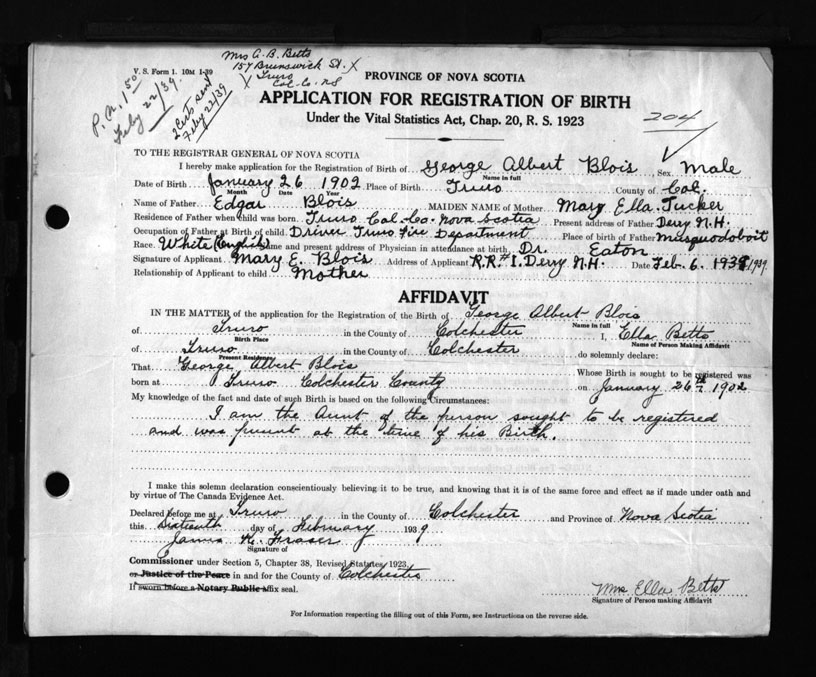 V. S. Form 1. 10M 1-39
Mrs A. B. Betts
157 Brunswick St. X
X Truro
Col. Co. NS
P. N. 150
Feby 22/39.
2 Certs sent
Feby 22/39
PROVINCE OF NOVA SCOTIA
APPLICATION FOR REGISTRATION OF BIRTH
Under the Vital Statistics Act, Chap. 20, R. S. 1923
204
TO THE REGISTRAR GENERAL OF NOVA SCOTIA
I hereby make application for the Registration of Birth of George Albert Blois Sex Male
Name in full
Date of Birth January 26 1902 Place of Birth Truro County of Col.
Month Date Year
Name of Father Edgar Blois MAIDEN NAME of Mother Mary Ella Tucker
Residence of Father when child was born. Truro Col. Co. Nova Scotia Present address of Father Derry N.H.
Occupation of Father at Birth of child. Driver Truro Fire Department Place of birth of Father Musquodoboit
Race. White (English) Name and present address of Physician in attendance at birth, Dr. Eaton
Signature of Applicant Mary E. Blois Address of Applicant R.R.# 1. Derry N.H. Date Feb. 6. 1939 1939.
Relationship of Applicant to child Mother
AFFIDAVIT
IN THE MATTER of the application for the Registration of the Birth of George Albert Blois
Name in full
of Truro in the County of Colchester I, Ella Betts
Birth Place Name of Person Making Affidavit
of Truro in the County of Colchester do solemnly declare:
Present Residence
That George Albert Blois Whose Birth is sought to be registered was
born at Truro Colchester County on January 26th 1902
My knowledge of the fact and date of such Birth is based on the following Circumstances:
I am the Aunt of the person sought to be registered
and was present at the time of his Birth.
I make this solemn declaration conscientiously believing it to be true, and knowing that it is of the same force and effect as if made under oath and
by virtue of The Canada Evidence Act.
Declared before me at Truro in the County of Colchester and Province of Nova Scotia
this Sixteenth day of February 1939
James K. Fraser
Signature of
Commissioner under Section 5, Chapter 38, Revised Statutes 1923
or Justice of the Peace in and for the County of Colchester
If sworn before a Notary Public affix seal.
Mrs Ella Betts
Signature of Person making Affidavit
For Information respecting the filling out of this Form, see Instructions on the reverse side.